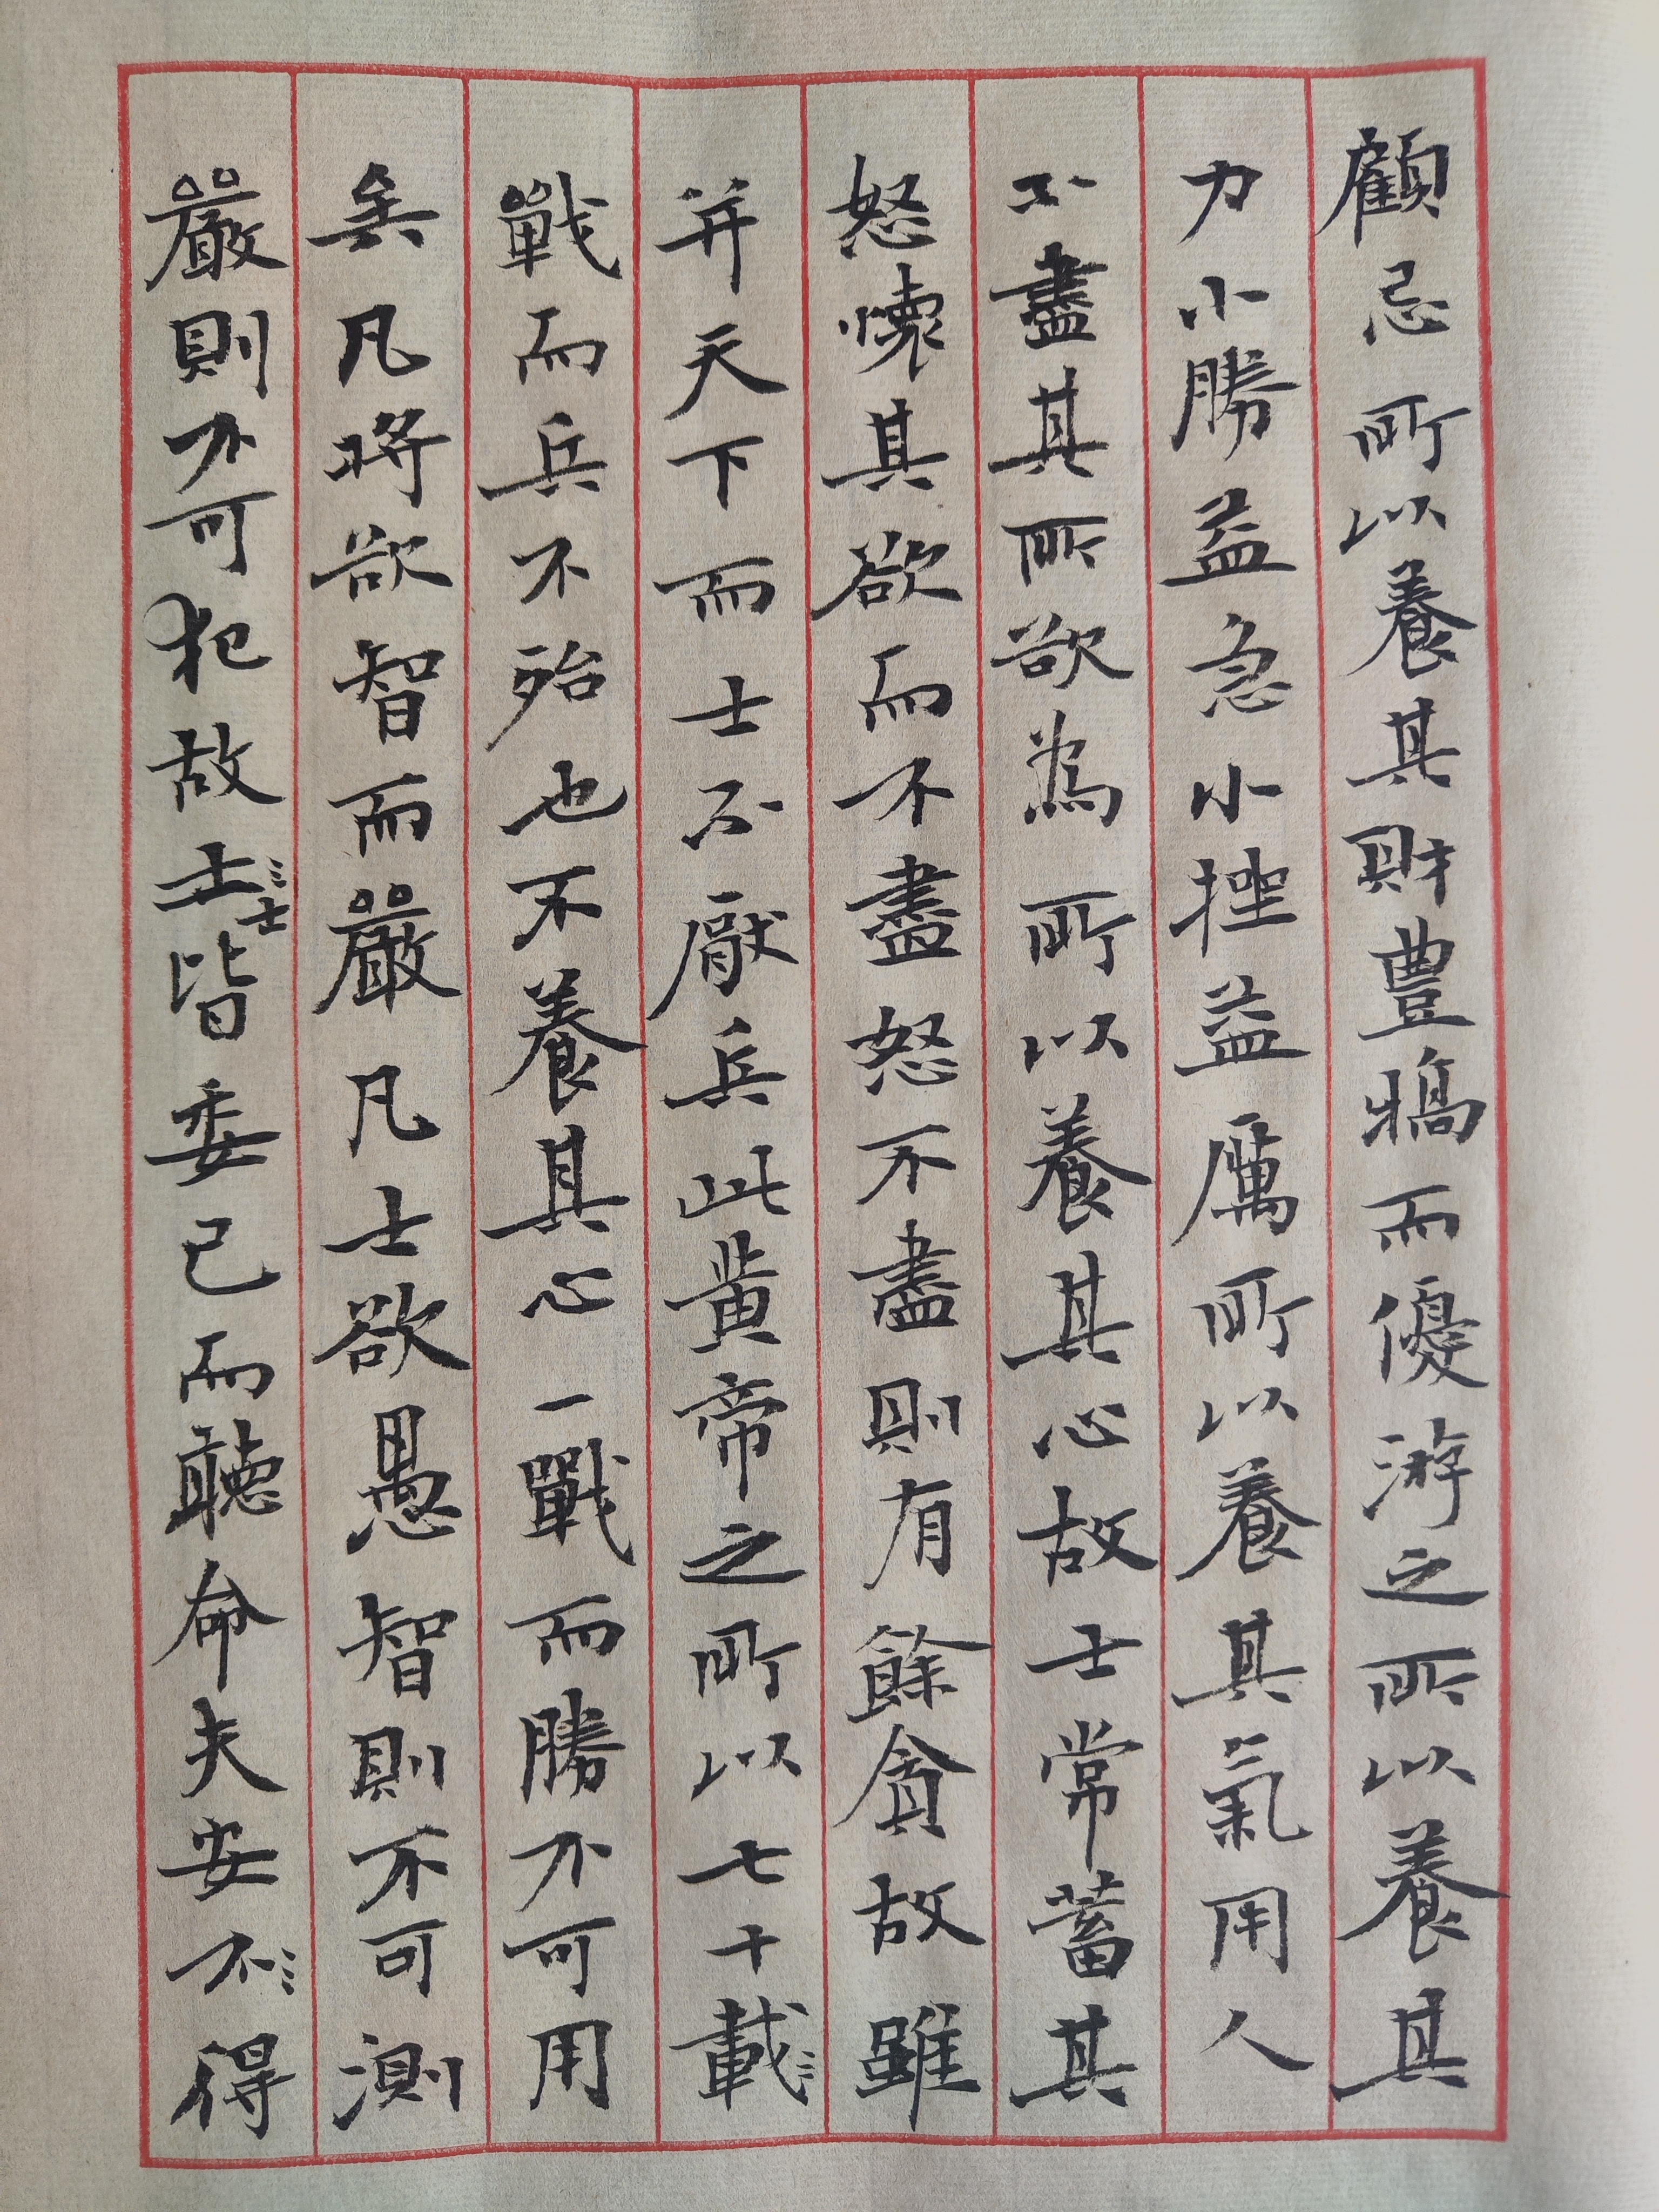 顧忌所以養其財豊犒而優游之所以養其
力小勝益急小挫益厲所以養其氣用人
不盡其所欲為所以養其心故士常蓄其
怒懷其欲而不盡怒不盡則有餘貪故雖
并天下而士不厭兵此黃帝之所以七十載
戰而兵不殆也不養其心一戰而勝不可用
矣凡將欲智而嚴凡士欲愚智則不可測
嚴則不可犯故士皆委己而聽命夫安不得